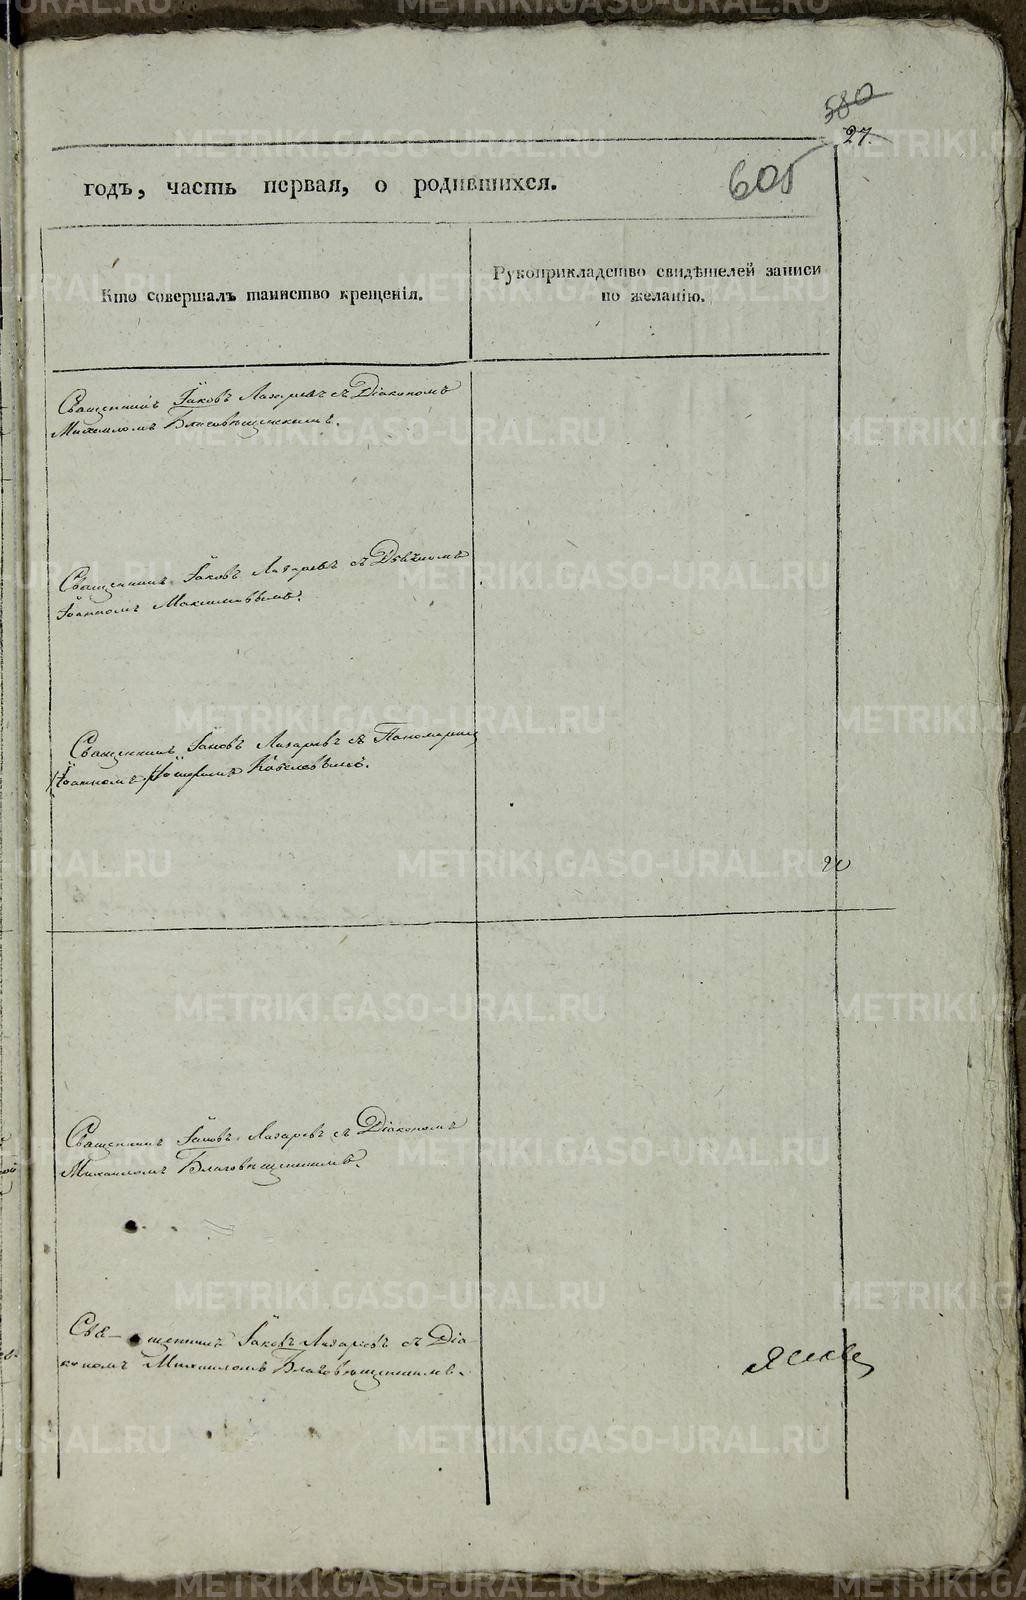 580
27.
605
годъ, часть первая, о родившихся.
Кто совершалъ таинство крещенія.
Рукоприкладство свидѣтелей записи
по желанію.
Священникъ Іаковъ Лазаревъ съ Діакономъ
Михаиломъ Благовѣщенскимъ.
Священникъ Іаковъ Лазаревъ съ Дьячкомъ
Іоанномъ Максимовымъ.
Священникъ Іаковъ Лазаревъ съ Пономаремъ
Іоанномъ
Священникъ Іаковъ Лазаревъ съ Діакономъ
Михаиломъ Благовѣщенскимъ.
Священникъ Іаковъ Лазаревъ съ Діа-
кономъ Михаиломъ Благовѣщенскимъ.
METRIKI.GASO-URAL.RU